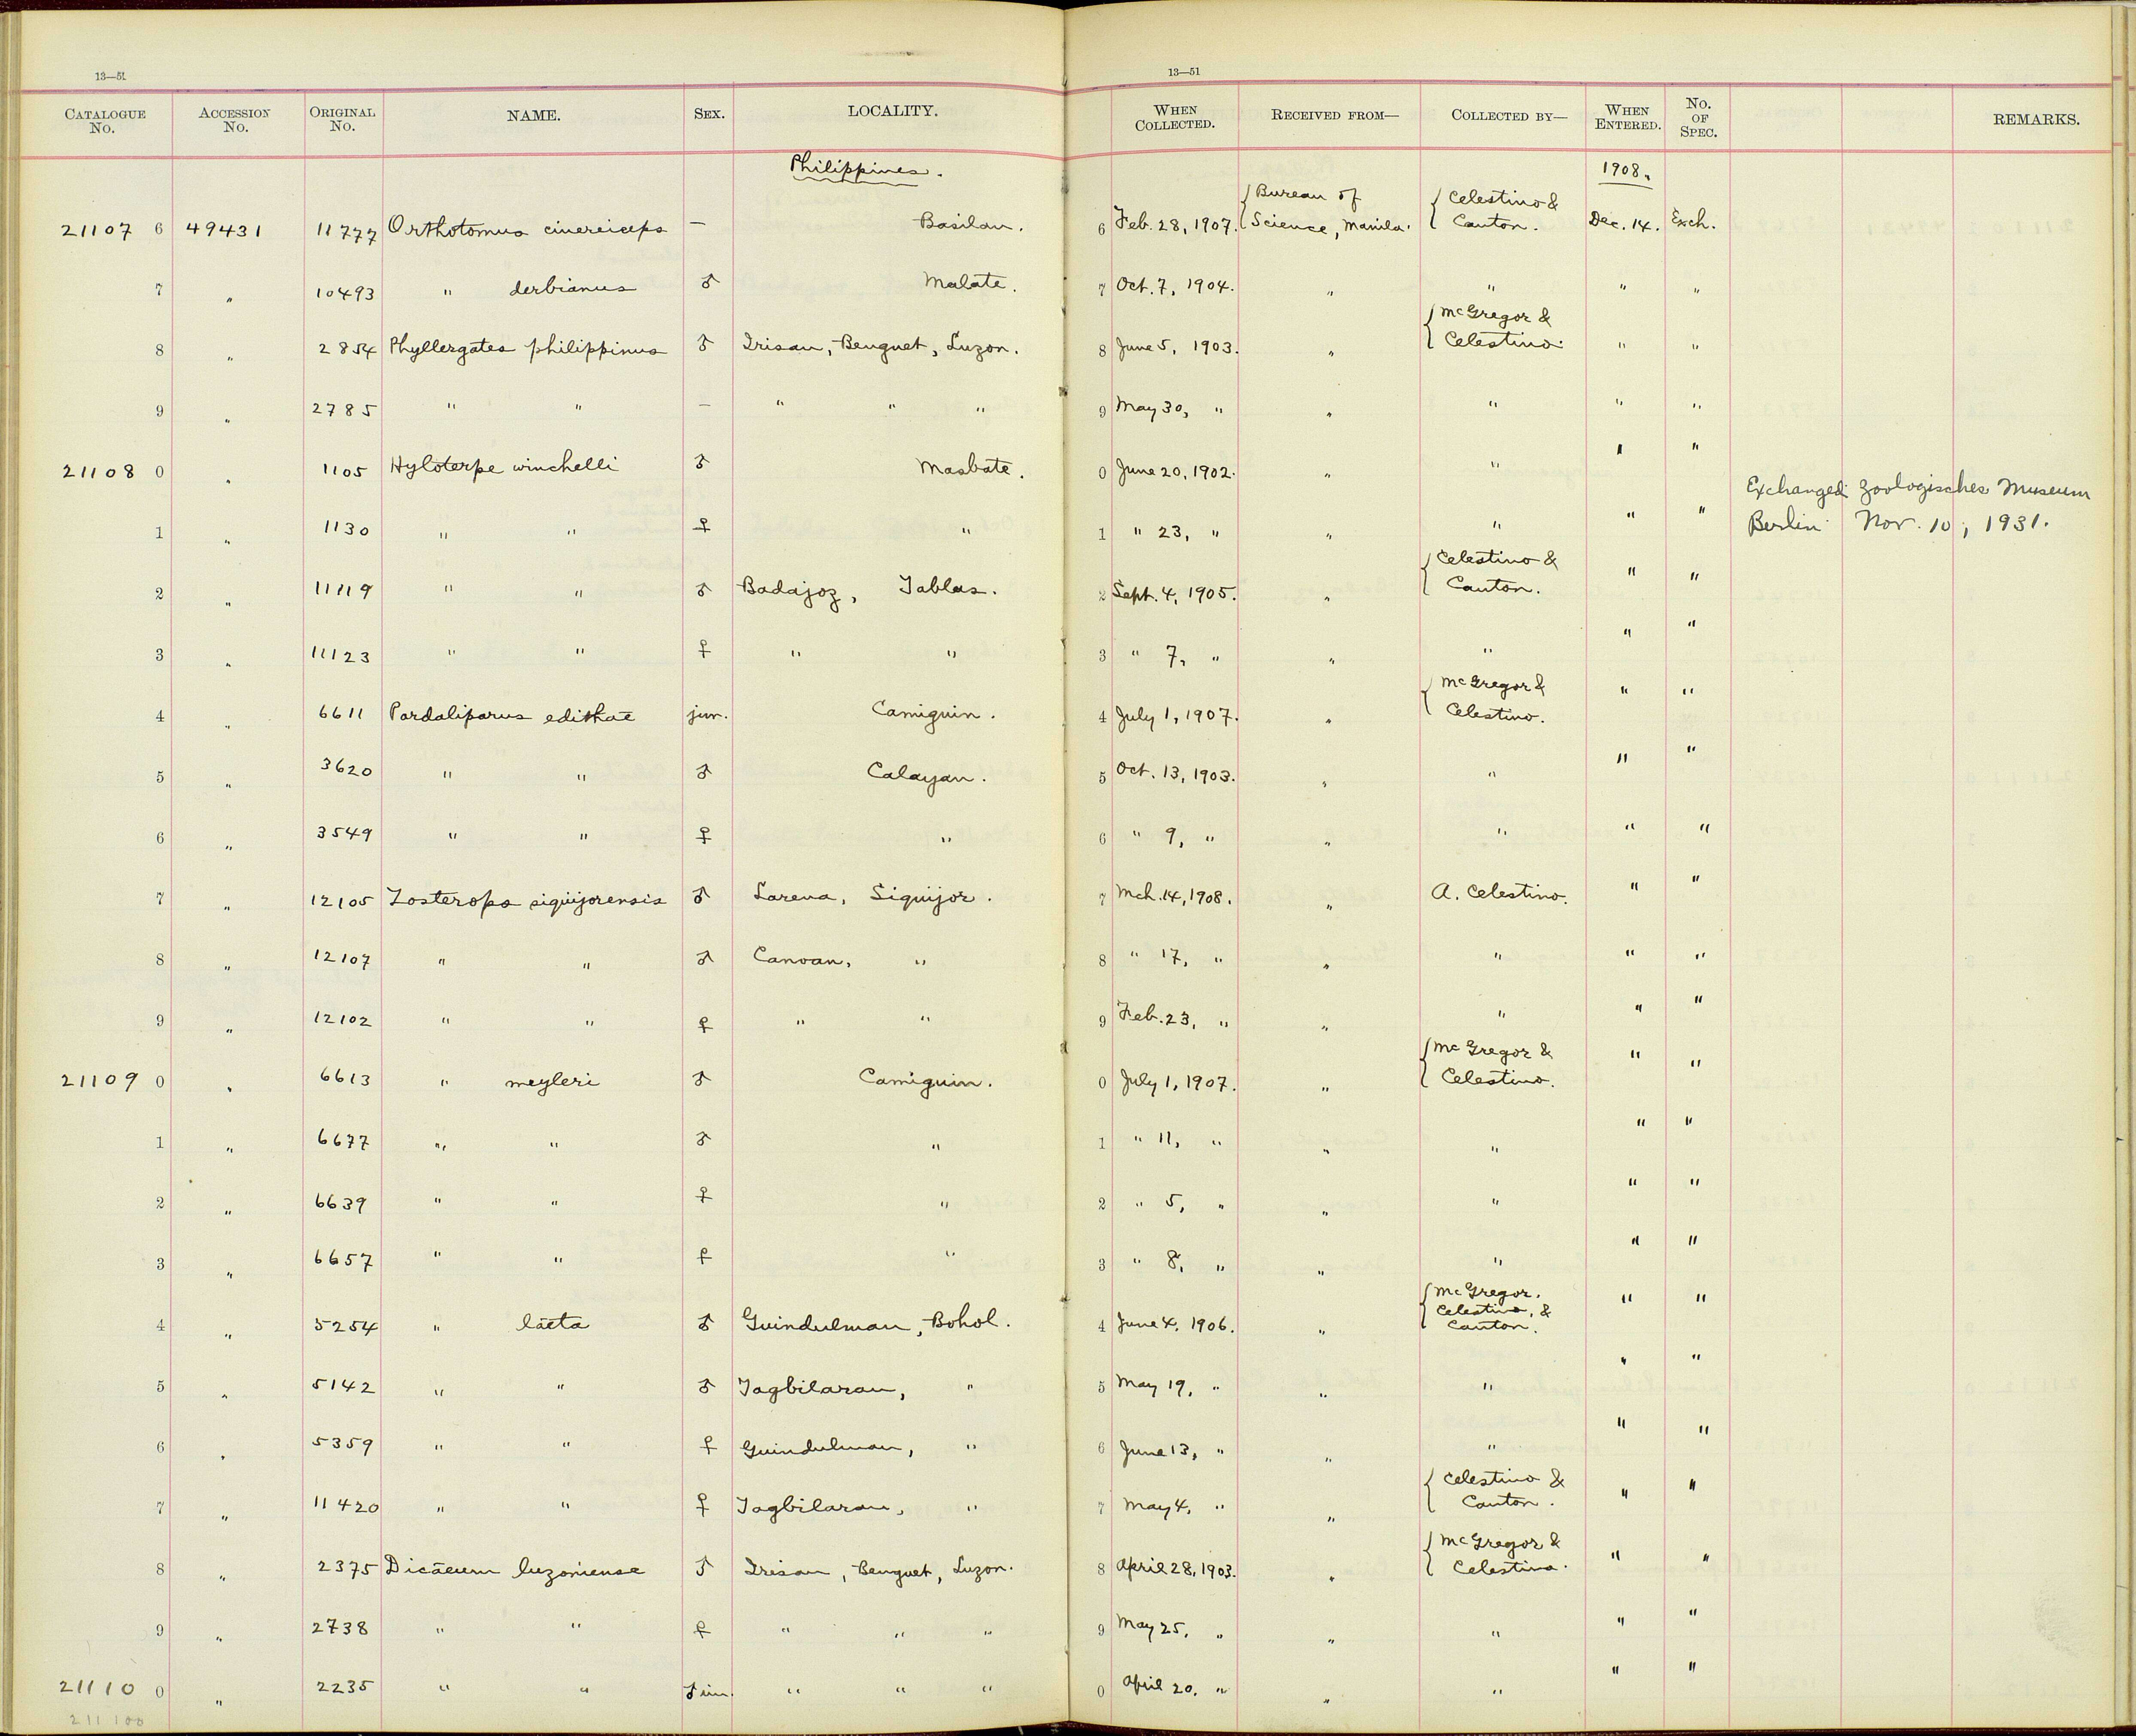 13—51
13—51
CATALOGUE No. ACCESSION No. ORIGINAL No. NAME. SEX. LOCALITY. WHEN COLLECTED. RECEIVED FROM— COLLECTED BY— WHEN ENTERED. No. OF SPEC. REMARKS.
Philippines. 1908.
21107 6 49431 11777 Orthotomus cinereiceps — Basilan. 6 Feb. 28, 1907. {Bureau of Science, Manila. {Celestino & Canton. Dec. 14. Exch.
7 " 10493 " derbianus ♂ Malate. 7 Oct. 7, 1904. " " " "
8 " 2854 Phyllergates philippinus ♂ Irisan, Benguet, Luzon. 8 June 5, 1903. " {McGregor & Celestino. " "
9 " 2785 " " — " " " 9 May 30, " " " " "
21108 0 " 1105 Hyloterpe winchelli ♂ Masbate. 0 June 20, 1902. " " " "
1 " 1130 " " ♀ " 1 " 23, " " " " " Exchanged Zoologisches Museum Berlin Nov. 10, 1931.
2 " 11119 " " ♂ Badajoz, Tablas. 2 Sept. 4, 1905. " {Celestino & Canton. " "
3 " 11123 " " ♀ " " 3 " 7, " " " " "
4 " 6611 Pardaliparus edithae juv. Camiguin. 4 July 1, 1907. " {McGregor & Celestino. " "
5 " 3620 " " ♂ Calayan. 5 Oct. 13, 1903. " " " "
6 " 3549 " " ♀ " 6 " 9, " " " " "
7 " 12105 Zosterops siquijorensis ♂ Larena, Siquijor. 7 Mch. 14, 1908. " A. Celestino. " "
8 " 12107 " " ♂ Canoan, " 8 " 17, " " " " "
9 " 12102 " " ♀ " " 9 Feb. 23, " " " " "
21109 0 " 6613 " meyleri ♂ Camiguin. 0 July 1, 1907. " {McGregor & Celestino. " "
1 " 6677 " " ♂ " 1 " 11, " " " " "
2 " 6639 " " ♀ " 2 " 5, " " " " "
3 " 6657 " " ♀ " 3 " 8, " " " " "
4 " 5254 " laeta ♂ Guindulman, Bohol. 4 June 4, 1906. " {McGregor. Celestino, & Canton. " "
5 " 5142 " " ♂ Tagbilaran, " 5 May 19, " " " " "
6 " 5359 " " ♀ Guindulman, " 6 June 13, " " " " "
7 " 11420 " " ♀ Tagbilaran, " 7 May 4, " " {Celestino & Canton. " "
8 " 2375 Dicaeum luzoniense ♂ Irisan, Benguet, Luzon. 8 April 28, 1903. " {McGregor & Celestino. " "
9 " 2738 " " ♀ " " " 9 May 25, " " " " "
21110 0 " 2235 " " ♂ im. " " " 0 April 20, " " " " "
211100